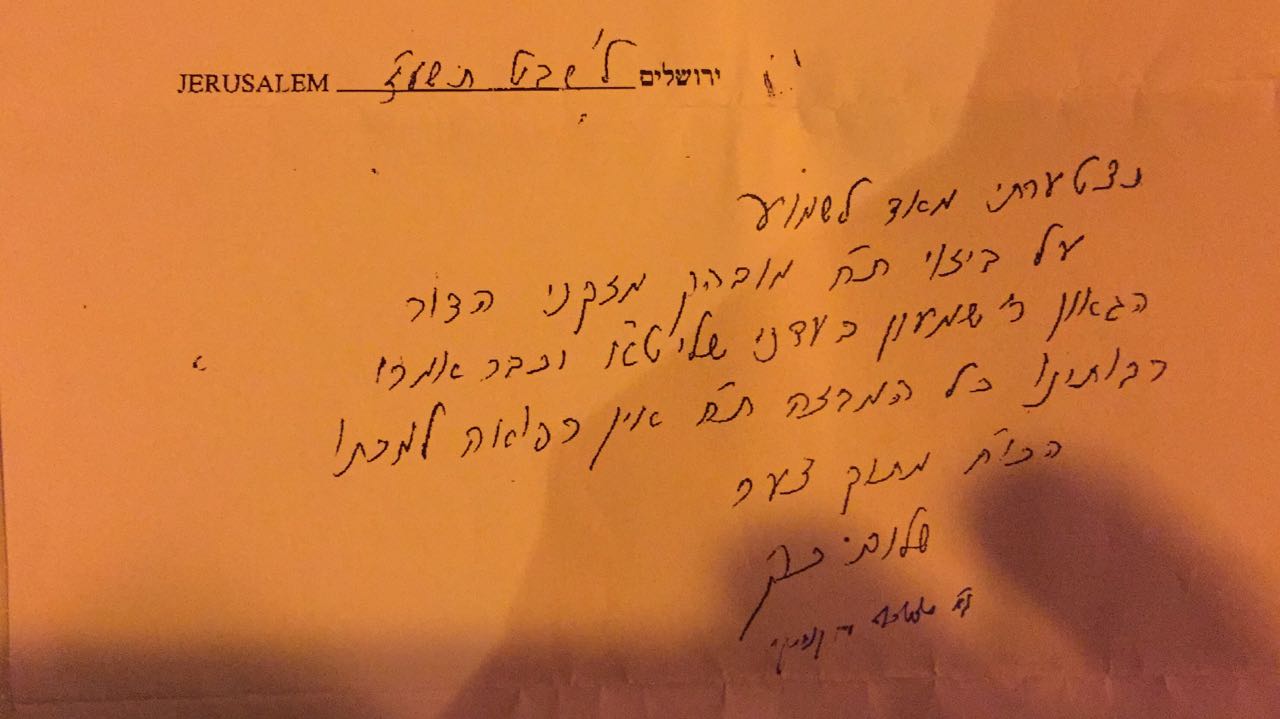 JERUSALEM ל' שבט תשע"ז ירושלים
נצטערתי מאוד לשמוע
על ביזוי ת"ח מובהק מזקני הדור
הגאון ר' שמעון בעדני שליט"א וכבר אמרו
רבותינו כל המבזה ת"ח אין רפואה למכתו
הכו"ח מתוך צער
שלום כהן